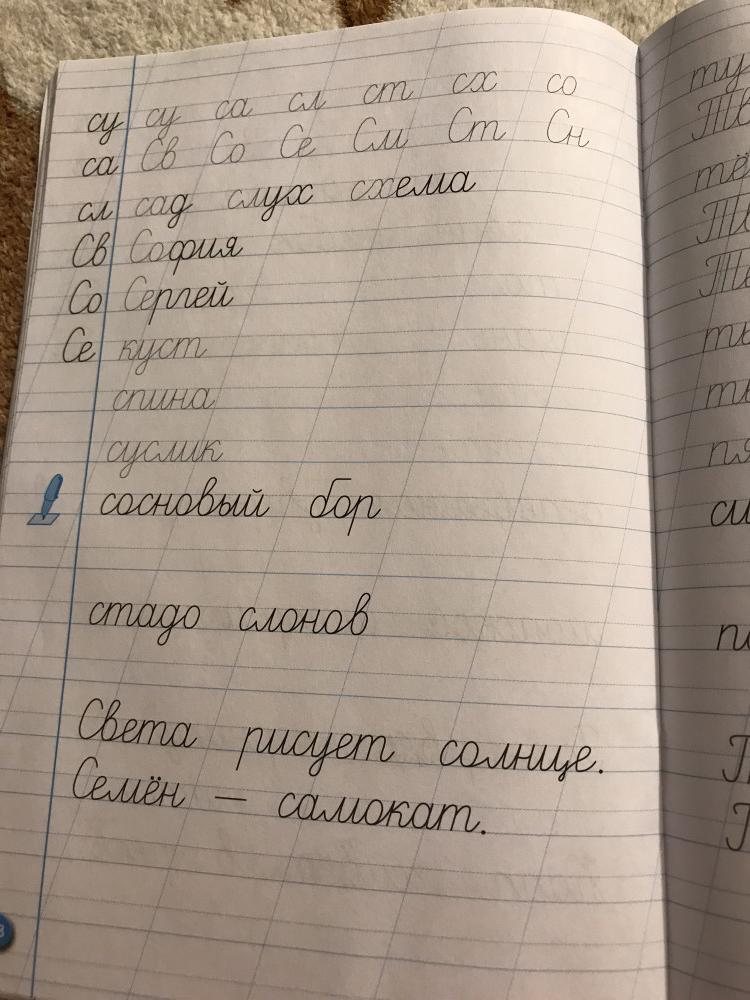 су су са сл ст сх со
са Св Со Се См Ст Сн
сл сад слух схема
Св София
Со Сергей
Се куст
спина
суслик
сосновый бор
стадо слонов
Света рисует солнце.
Семён — самокат.
ту
тё